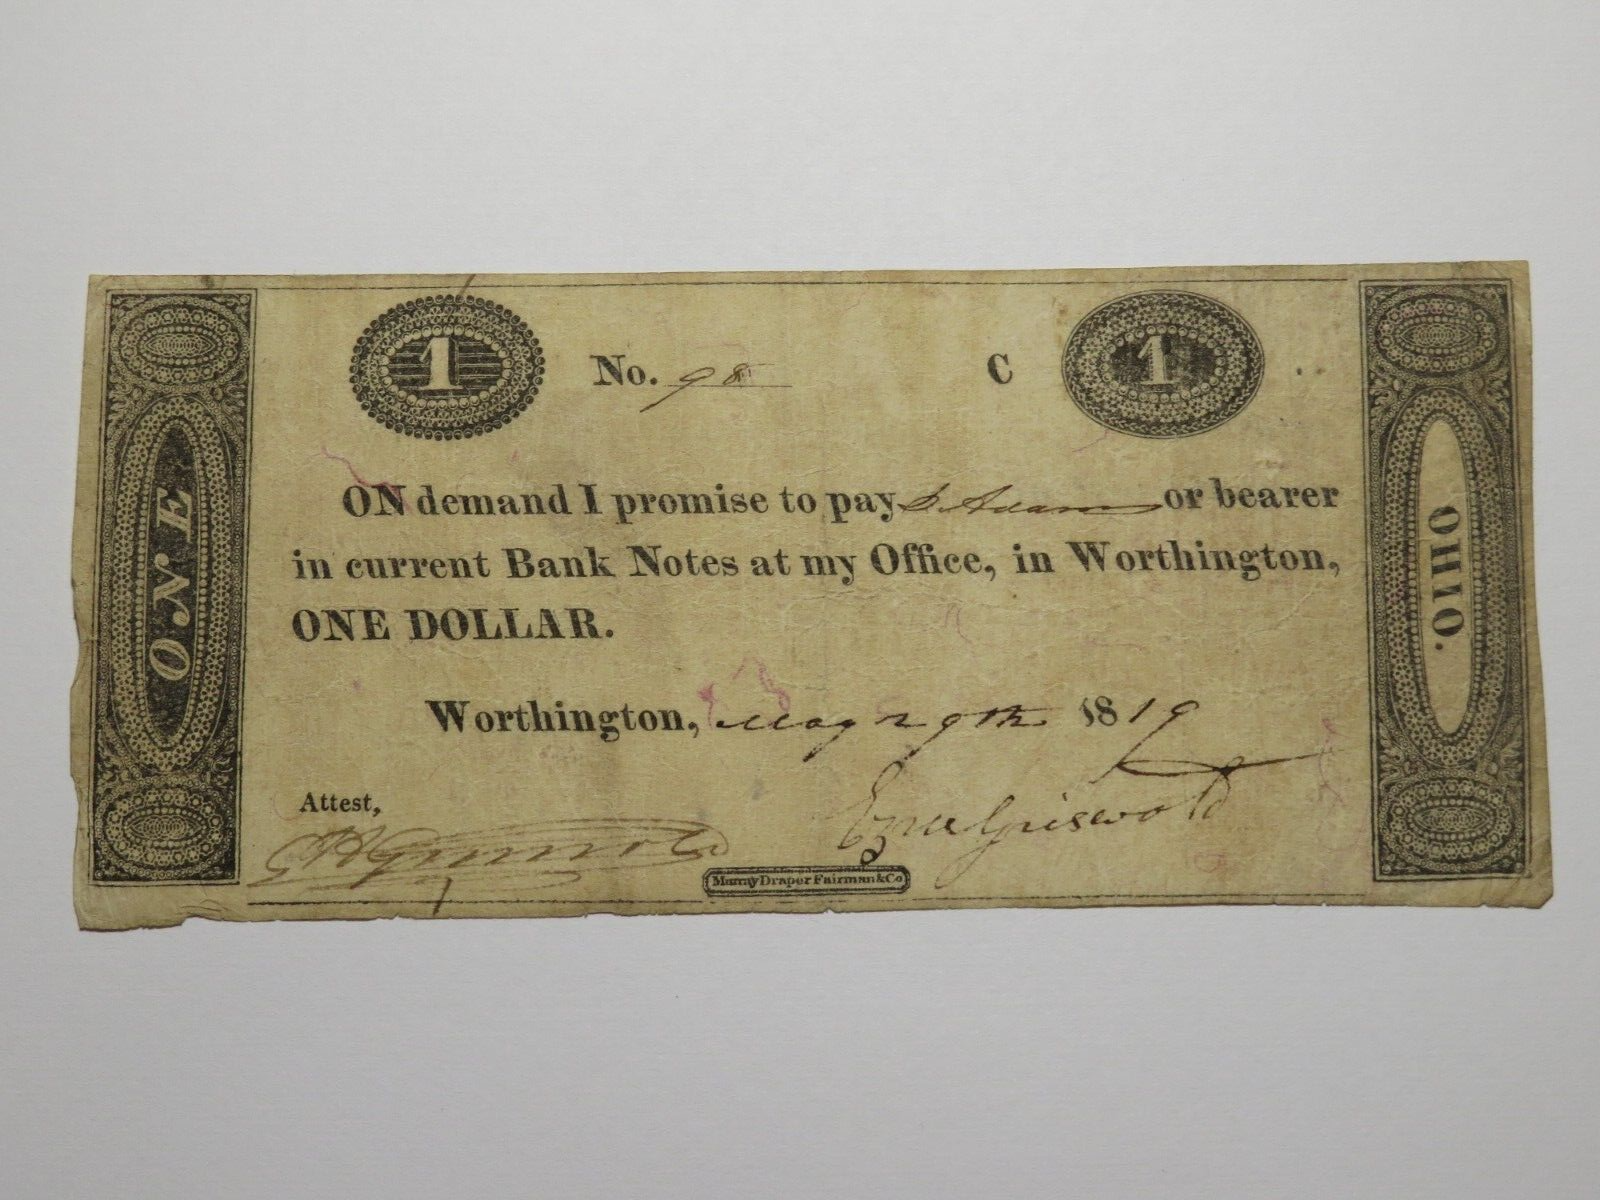 1 No. 98 C 1
ONE
ON demand I promise to pay J. Adams or bearer
in current Bank Notes at my Office, in Worthington,
ONE DOLLAR.
OHIO.
Worthington, May 29th 1819
Attest,
Ezra Griswold
Griswold
Murray Draper Fairman & Co